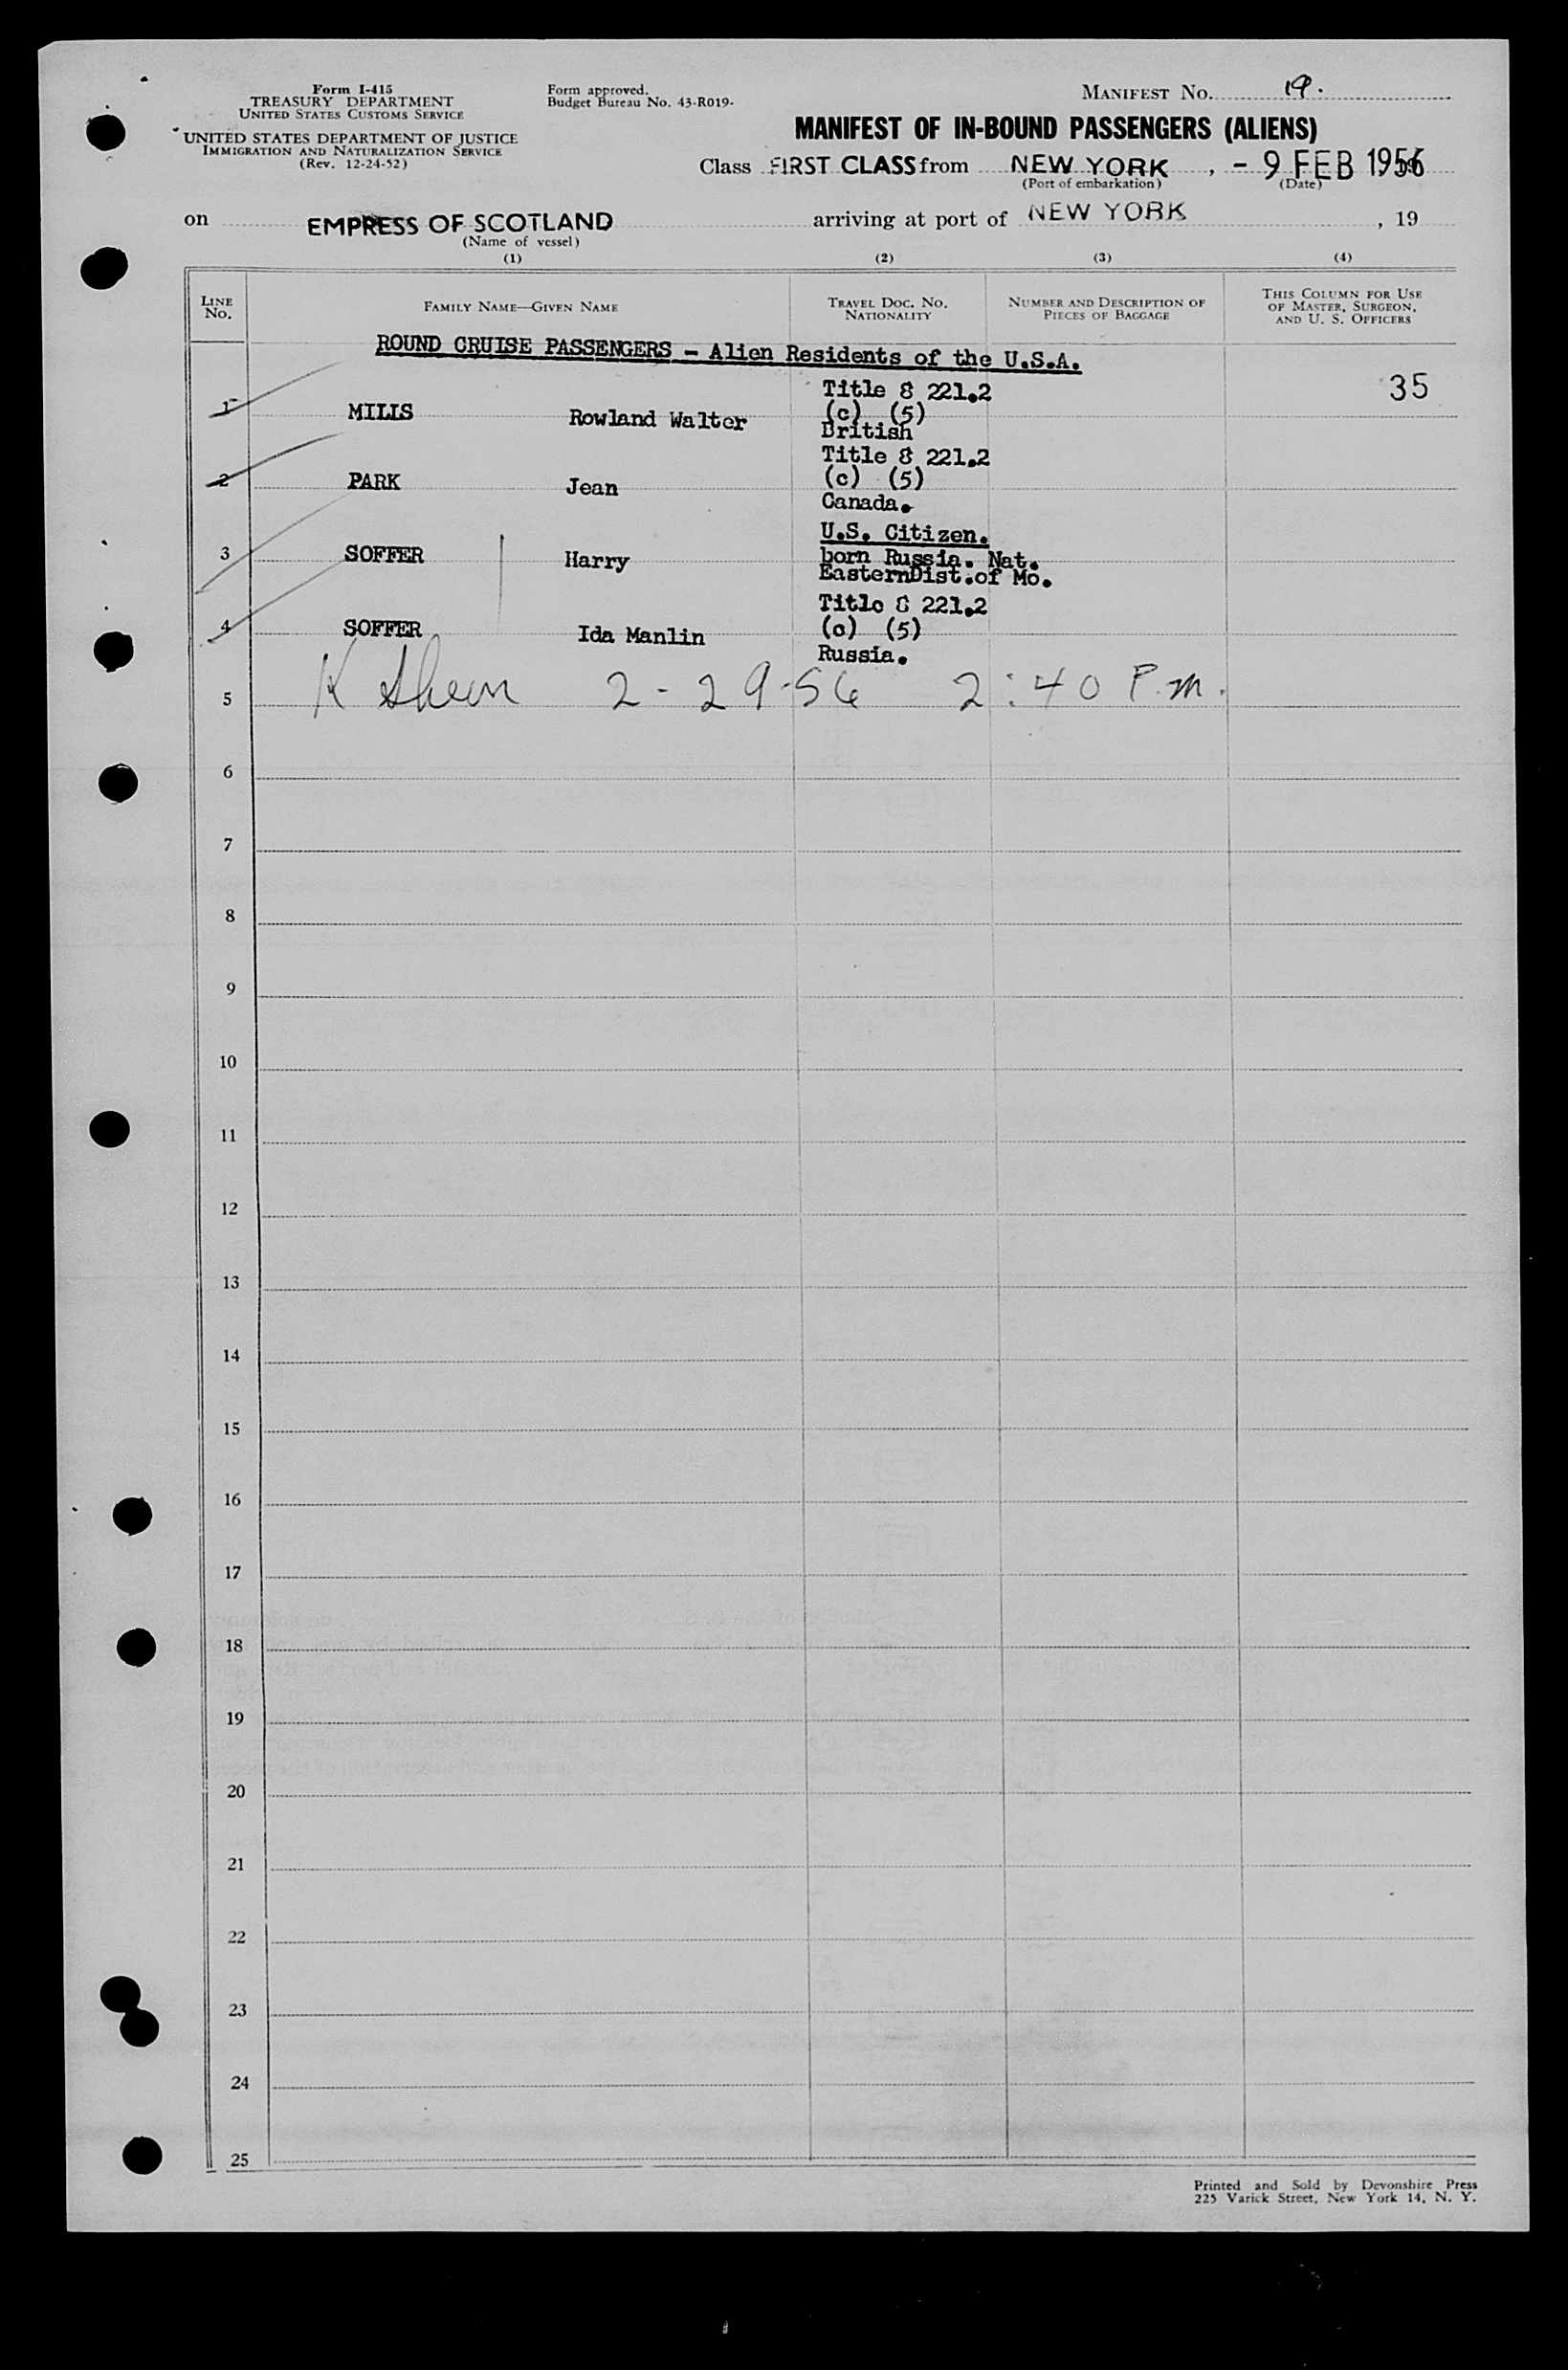 Form I-415
TREASURY DEPARTMENT
UNITED STATES CUSTOMS SERVICE
UNITED STATES DEPARTMENT OF JUSTICE
IMMIGRATION AND NATURALIZATION SERVICE
(Rev. 12-24-52)
Form approved.
Budget Bureau No. 43-R019-
MANIFEST NO. 19.
MANIFEST OF IN-BOUND PASSENGERS (ALIENS)
Class FIRST CLASS from NEW YORK, - 9 FEB 1956
(Port of embarkation) (Date)
on EMPRESS OF SCOTLAND arriving at port of NEW YORK, 19
(Name of vessel)
(1) (2) (3) (4)
LINE NO.
FAMILY NAME—GIVEN NAME
TRAVEL DOC. NO.
NATIONALITY
NUMBER AND DESCRIPTION OF
PIECES OF BAGGAGE
THIS COLUMN FOR USE
OF MASTER, SURGEON,
AND U. S. OFFICERS
ROUND CRUISE PASSENGERS - Alien Residents of the U.S.A.
35
1 MILLS Rowland Walter Title 8 221.2
(c) (5)
British
2 PARK Jean Title 8 221.2
(c) (5)
Canada.
3 SOFFER Harry U.S. Citizen.
born Russia. Nat.
EasternDist.of Mo.
4 SOFFER Ida Manlin Title 8 221.2
(c) (5)
Russia.
5 K 2-29-56 2:40 P.m.
6
7
8
9
10
11
12
13
14
15
16
17
18
19
20
21
22
23
24
25
Printed and Sold by Devonshire Press
225 Varick Street, New York 14, N. Y.